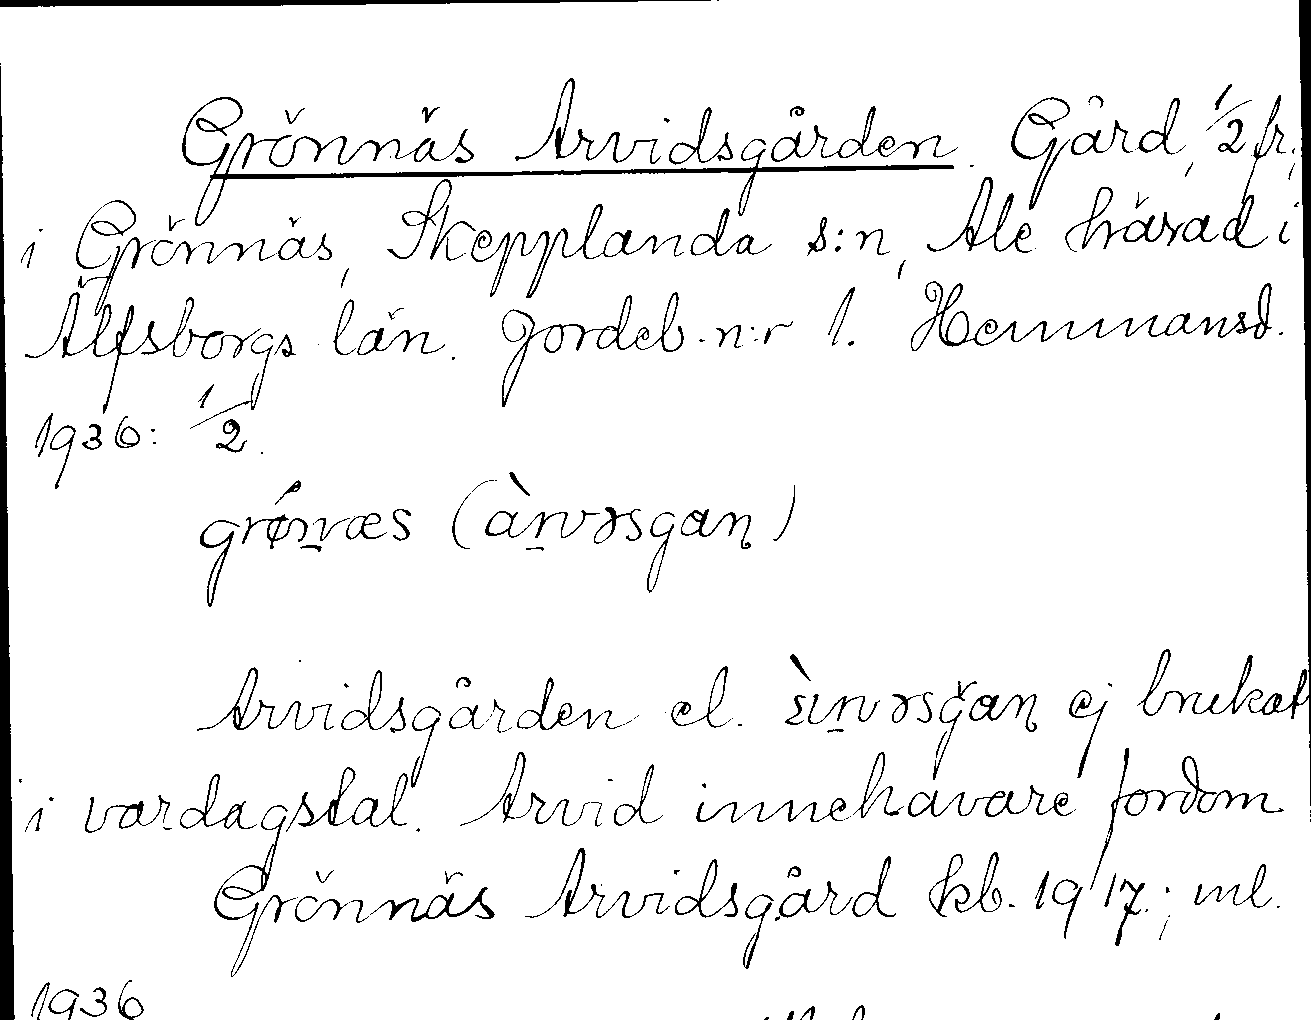 Grönnäs Arvidsgården. Gård, 1/2 fr.,
i Grönnäs, Skepplanda s:n, Ale härad i
Älfsborgs län. Jordeb. n:r 1. Hemmansd.
1936: 1/2.
(
)
Arvidsgården el. ej brukat
i vardagstal. Arvid innehavare fordom
Grönnäs Arvidsgård kb. 1917; ml.
1936